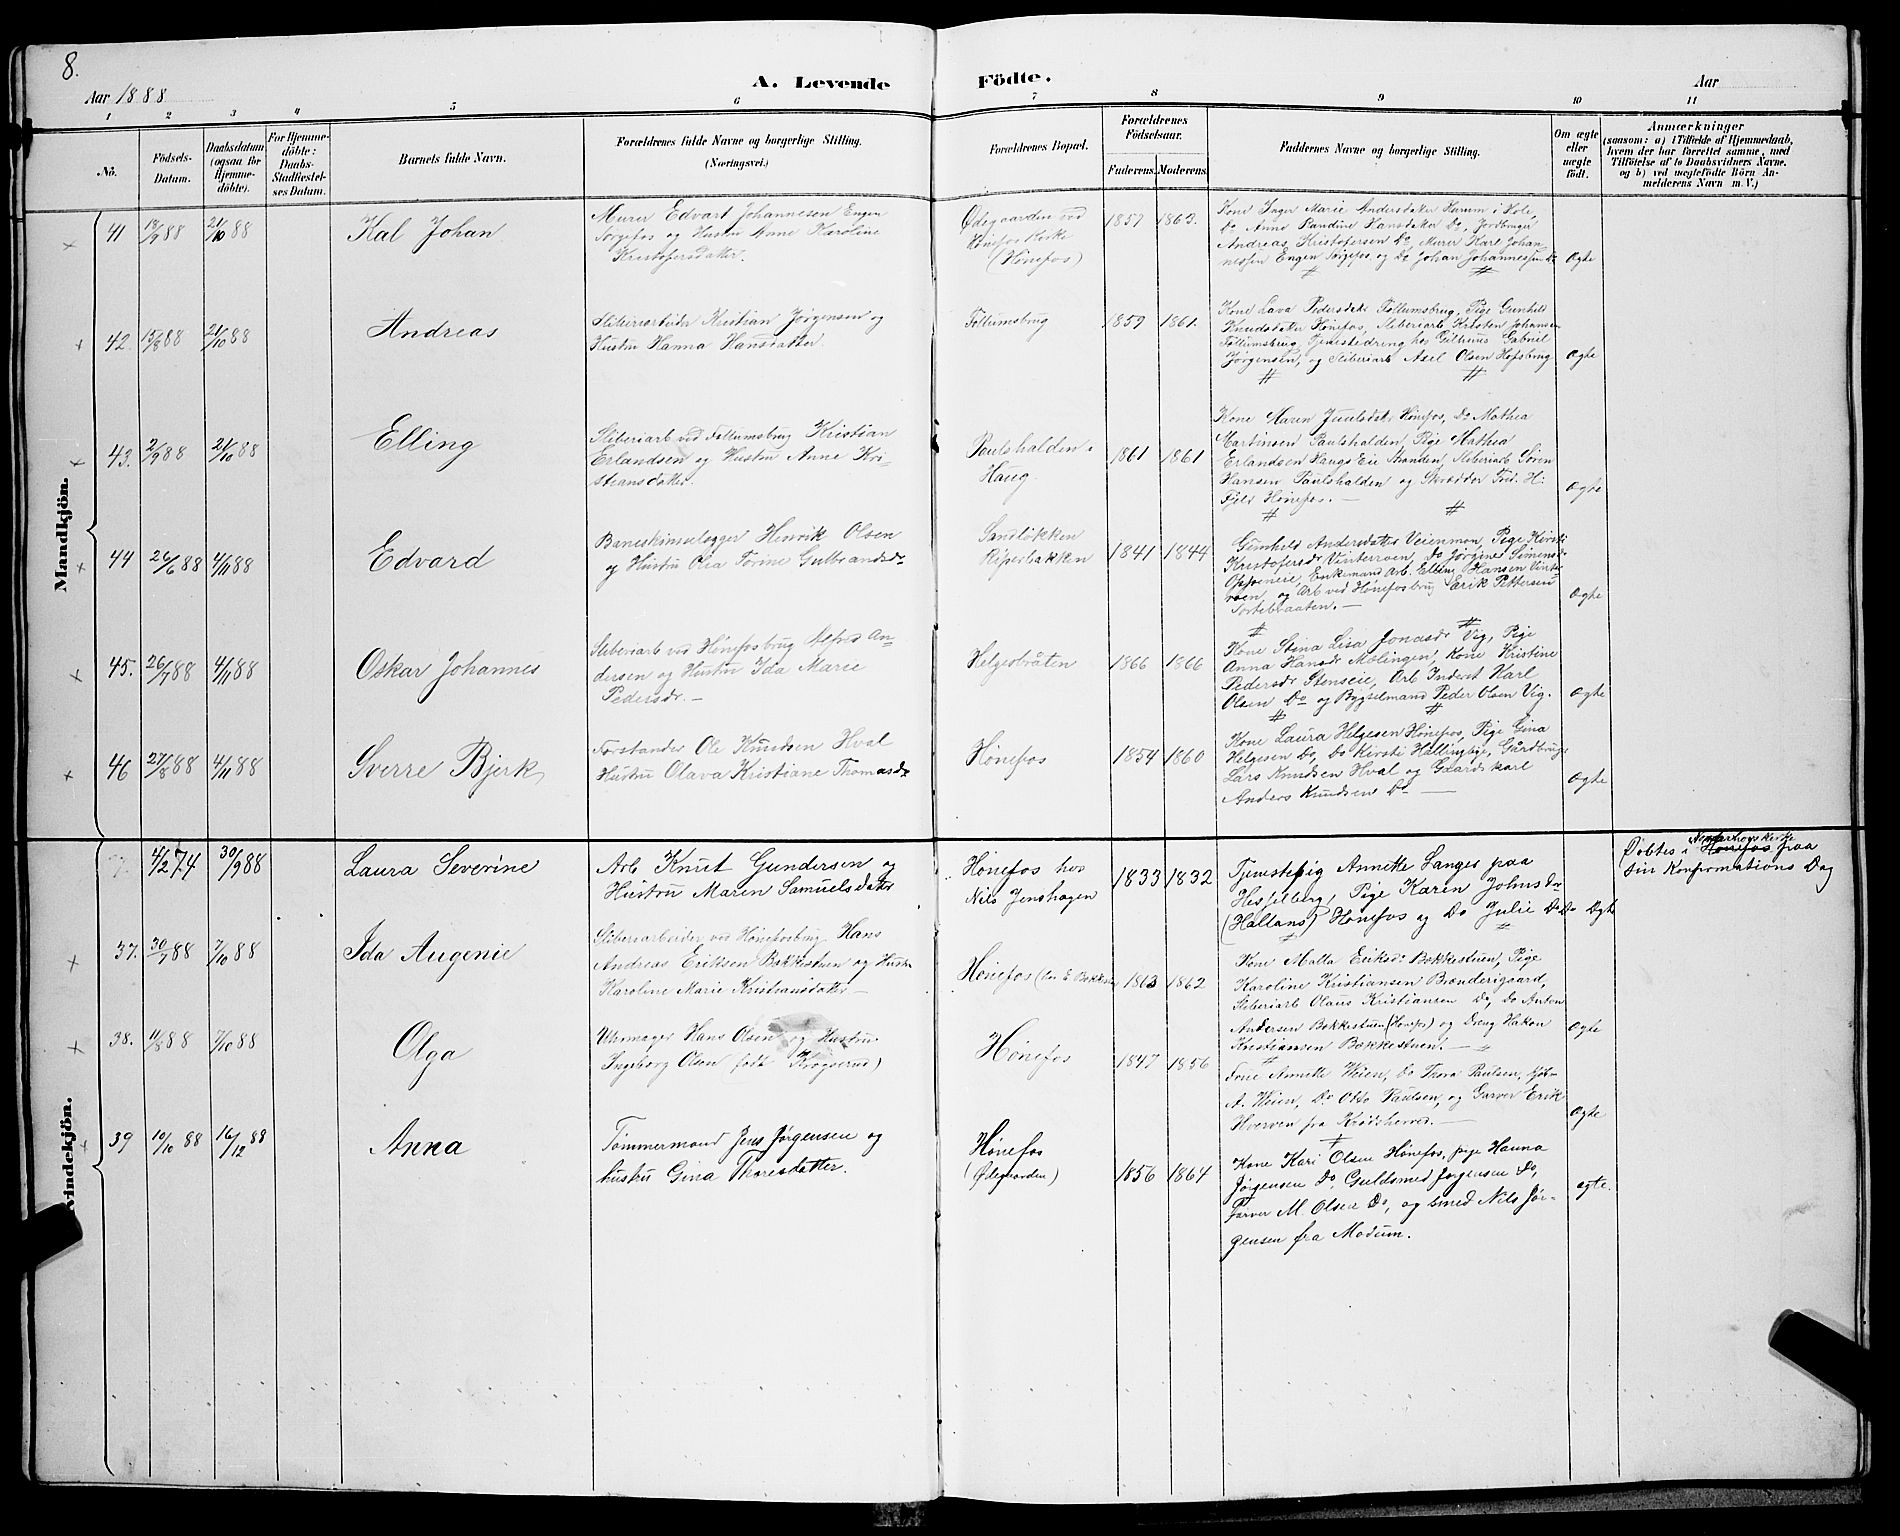 8.
Aar 1888
A. Levende Födte.
Aar
1 2 3 4 5 6 7 8 9 10 11
No.
Födsels-Datum.
Daabsdatum (ogsaa for Hjemme-döbte).
For Hjemme-döbte: Daabs-Stadfæstel-ses Datum.
Barnets fulde Navn.
Forældrenes fulde Navne og borgerlige Stilling. (Næringsvei.)
Forældrenes Bopæl.
Forældrenes Födselsaar.
Faderens. Moderens.
Faddernes Navne og borgerlige Stilling.
Om ægte eller uægte födt.
Anmærkninger
(saasom: a) i Tilfælde af Hjemmedaab,
hvem der har forrettet samme, med
Tilföielse af to Daabsvidners Navne.
og b) ved uægtefödte Börn An-
melderens Navn m. V.)
Mandkjön.
41 19/9 88 21/10 88 Kal Johan
Murer Edvart Johannesen Engen
Sorgefos og Hustru Anne Karoline
Kristofersdatter.
Ødegaarden ved
Hønefos Kirke
(Hønefos)
1857 1863.
Kone Inger Marie Andersdatter Harum i Hole,
Do Anne Randine Hansdatter Do, Jordbruger
Andreas Kristofersen Do Murer Karl Johan
nessen Engen Sørgefos og Do Johan Johannessen Do
Ægte
42. 15/8 88 21/10 88 Andreas
Sliberiarbeider Kristian Jørgensen og
Hustru Hanna Hansdatter.
Follumsbrug
1859 1861.
Kone Lava Pedersdatr Follumsbrug, Pige Gunhild
Knudsdatter Hønefos, Sliberiarb Kristen Johansen
Follumsbrug, Tjenestedreng hos Gilhuus Gabriel
Jørgensen, og Sliberiarb Axel Olsen Hofsbrug
Ægte
43. 2/9 88 21/10 88 Elling
Sliberiarb ved Follumsbrug Kristian
Erlandsen og Hustru Anne Kri-
stiansdatter.
Paulshalden i
Haug.
1861 1861
Kone Maren Juulsdatr Hønefos, Do Mathea
Martinsen Paulshalden, Pige Mathea
Erlandsen Haugs Eie Stranden, Sliberiarb Søren
Hansen Paulshalden og Skrædder Fred. H.
Fjeld Hønefos. —
Ægte
44 26/6 88 4/11 88 Edvard
Henrik Olsen
og Hustru Olea Torine Gulbrandsdr
Sandløkken
Riperbakken
1841 1844
Gunhild Andersdatter Veienmon, Pige Kirsti
Kristofersdr Vinterroen, Do Jørgine Simensdr
Oppeneie, Enkemand Arb. Elling Hansen Vinter
roen, og Arb ved Hønefosbrug Erik Pettersen
Sortebraaten. —
Ægte
45. 26/7 88 4/11 88 Oskar Johannes
Sliberiarb ved Hønefosbrug Alfred An-
dersen og Hustru Ida Marie
Pedersdr. —
Helgesbråten
1866 1866
Kone Stina Lisa Jonasdr Vig, Pige
Anna Hansdr Mælingen, kone Kristine
Pedersdr Stenseie, Arb Inderst Karl
Olsen Do og Bygselmand Peder Olsen Vig.
Ægte
46 27/8 88 4/11 88 Sverre Bjerk
Forstander Ole Knudsen Hval
Hustru Olava Kristiane Thomasdr
Hønefos
1854 1860
Kone Laura Helgesen Hønefos, Pige Gina
Helgesen Do, Do Kirsti Hallingbye, Gårdbruger
Lars Knudsen Hval og Gaardskarl
Anders Knudsen Do —
Ægte
Kvindekjön.
4/2 74 30/9 88 Laura Severine
Arb Knut Gundersen og
Hustru Maren Samuelsdatter
Hønefos hos
Nils Jenshagen
1833 1832
Tjenestepig Annette Langes paa
Hesselberg, Pige Karen Johnsdr
(Hallans) Hønefos og Do Julie Do Do
Ægte
Døbtes i Norderhovskirke Hønefos paa
sin Konfirmations Dag
37. 30/7 88 7/10 88 Ida Augenie
Sliberiarbeider ved Hønefosbrug Hans
Andreas Eriksen Bakkestuen og Hustru
Karoline Marie Kristiansdatter —
Hønefos
1863 1862
Kone Malla Eriksd: Bakkestuen, Pige
Karoline Kristiansen Brænderigaard,
Sliberiarb Olaus Kristiansen Do, Do Anton
Andersen Bakkestuen (Hønefos) og Dreng Hakon
Kristiansen Bakkestuen. —
Ægte
38. 11/8 88 7/10 88 Olga
Uhrmager Hans Olsen og Hustru
Ingeborg Olsen (født Krogsrud)
Hønefos
1847 1856
Frue Annette Weien, Do Thora Paulsen, Kjøb-
A. Weien, Do Otto Paulsen, og Garver Erik
Hverven fra Krødsherred. —
Ægte
39 10/10 88 16/12 88 Anna
Tømmermand Jens Jørgensen og
hustru Gina Thoresdatter.
Hønefos
(Ødegaarden)
1856 1864
Kone Kari Olsen Hønefos, pige Hanna
Jørgensen Do, Guldsmed Jørgensen Do,
Farver M. Olsen Do, og smed Nils Jør-
gensen fra Modum.
ægte.